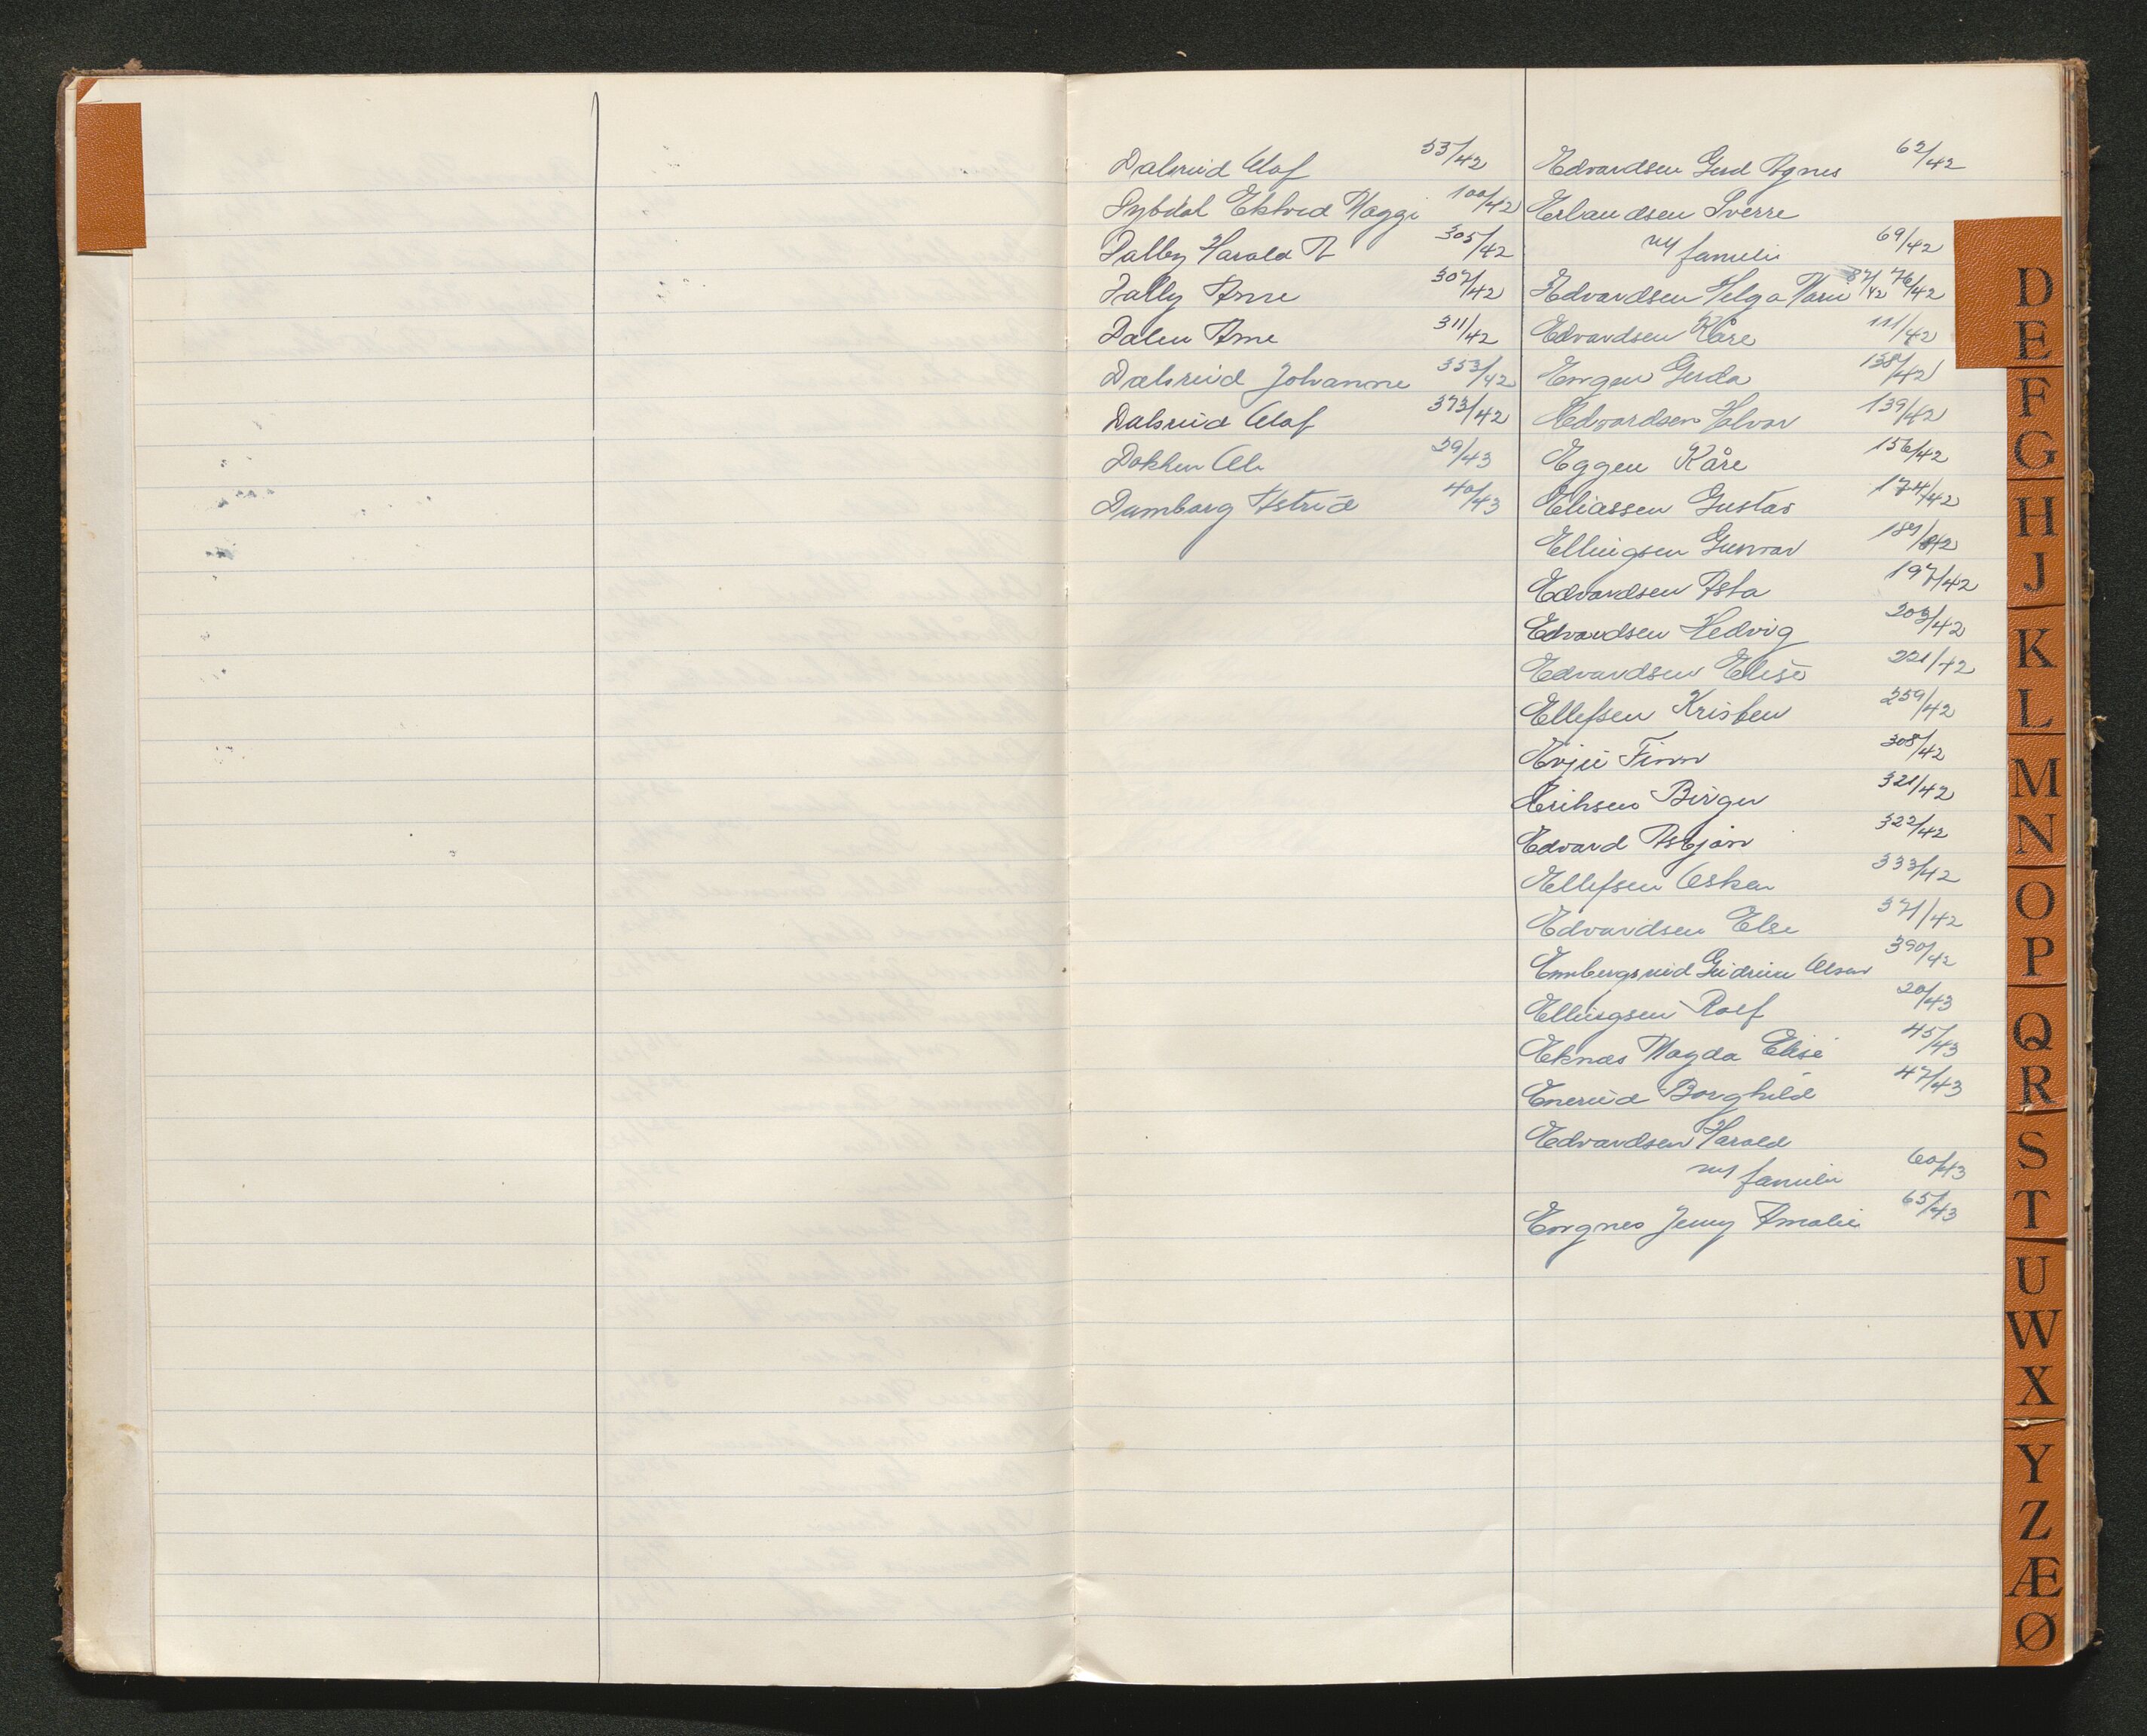 Dalsrud Olaf 53/42
Dybdal Ektved Maggi 100/42
Dalby Harald A 305/42
Dally Arne 307/42
Dalen Arne 311/42
Dalsrud Johanne 353/42
Dalsrud Olaf 373/42
Dokken Ole 29/43
Damborg Astrid 40/43
Edvardsen Gerd Agnes 62/42
Erlandsen Sverre
m/ familie 69/42
Edvardsen Helga Marie 87/42 76/42
Edvardsen Kåre 111/42
Engen Gerda 138/42
Edvardsen Halvor 139/42
Eggen Kåre 156/42
Eliassen Gustav 174/42
Ellingsen Gunvor 189/42
Edvardsen Asta 197/42
Edvardsen Hedvig 203/42
Edvardsen Elise 221/42
Ellefsen Kristen 259/42
Evju Finn 308/42
Eriksen Birger 321/42
Edvard Asbjørn 322/42
Ellefsen Oskar 333/42
Edvardsen Else 371/42
Embergsrud Gudrun Olsen 390/42
Ellingsen Rolf 20/43
Eknæs Magda Elise 45/43
Enerud Borghild 47/43
Edvardsen Harald
m/ familie 60/43
Engnes Jenny Amalie 65/43
D
E
F
G
H
J
K
L
M
N
O
P
Q
R
S
T
U
W
X
Y
Z
Æ
Ø